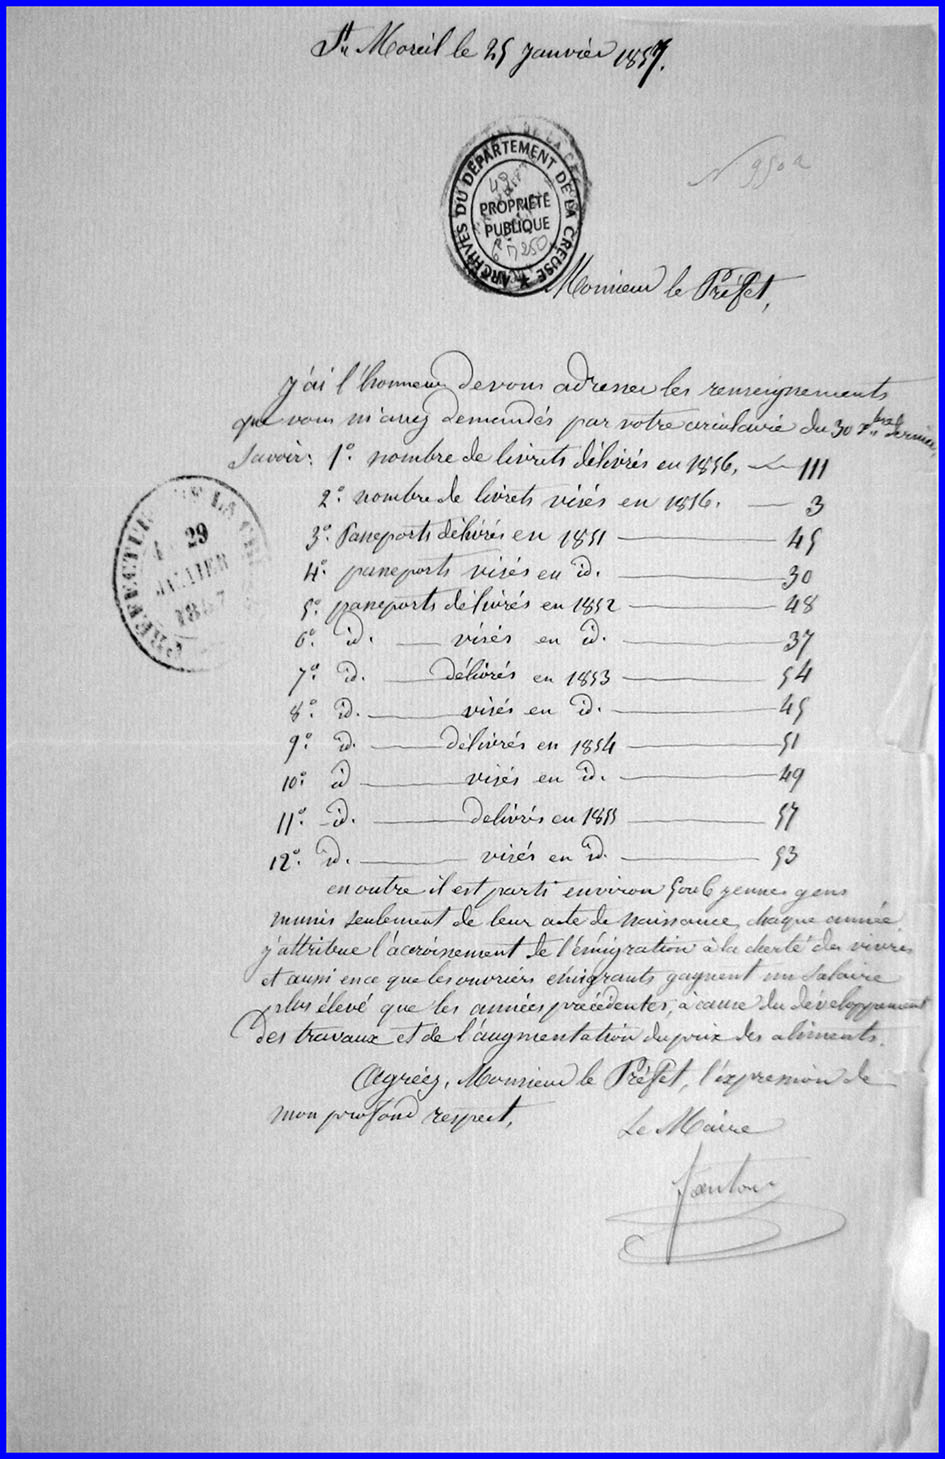 St Moreil le 25 Janvier 1857.
ARCHIVES DU DÉPARTEMENT DE LA CREUSE
PROPRIÉTÉ
PUBLIQUE
N 950a
Monsieur le Préfet,
J'ai l'honneur de vous adresser les renseignements
que vous m'avez demandés par votre circulaire du 30 Xbre dernier,
Savoir: 1º. nombre de livrets délivrés en 1856. — 111
2º. nombre de livrets visés en 1856. — 3
3º. Passeports délivrés en 1851 — 45
4º. passeports visés en id. — 30
5º. passeports délivrés en 1852 — 48
6º. id. — visés en id. — 37
7º. id. — délivrés en 1853 — 54
8º. id. — visés en id. — 45
9º. id. — délivrés en 1854 — 51
10º. id — visés en id. — 49
11º. id. — delivrés en 1855 — 57
12º. id. — visés en id. — 53
PREFECTURE DE LA CREUSE
29
JANVIER
1857
en outre il est parti environ 5 ou 6 jeunes gens
munis seulement de leur acte de naissance, chaque année.
j'attribue l'accroissement de l'émigration à la cherté des vivres
et aussi en ce que les ouvriers émigrants gagnent un salaire
plus élevé que les années précédentes, à cause du développement
des travaux et de l'augmentation du prix des aliments.
Agréez, Monsieur le Préfet, l'expression de
mon profond respect,
Le Maire